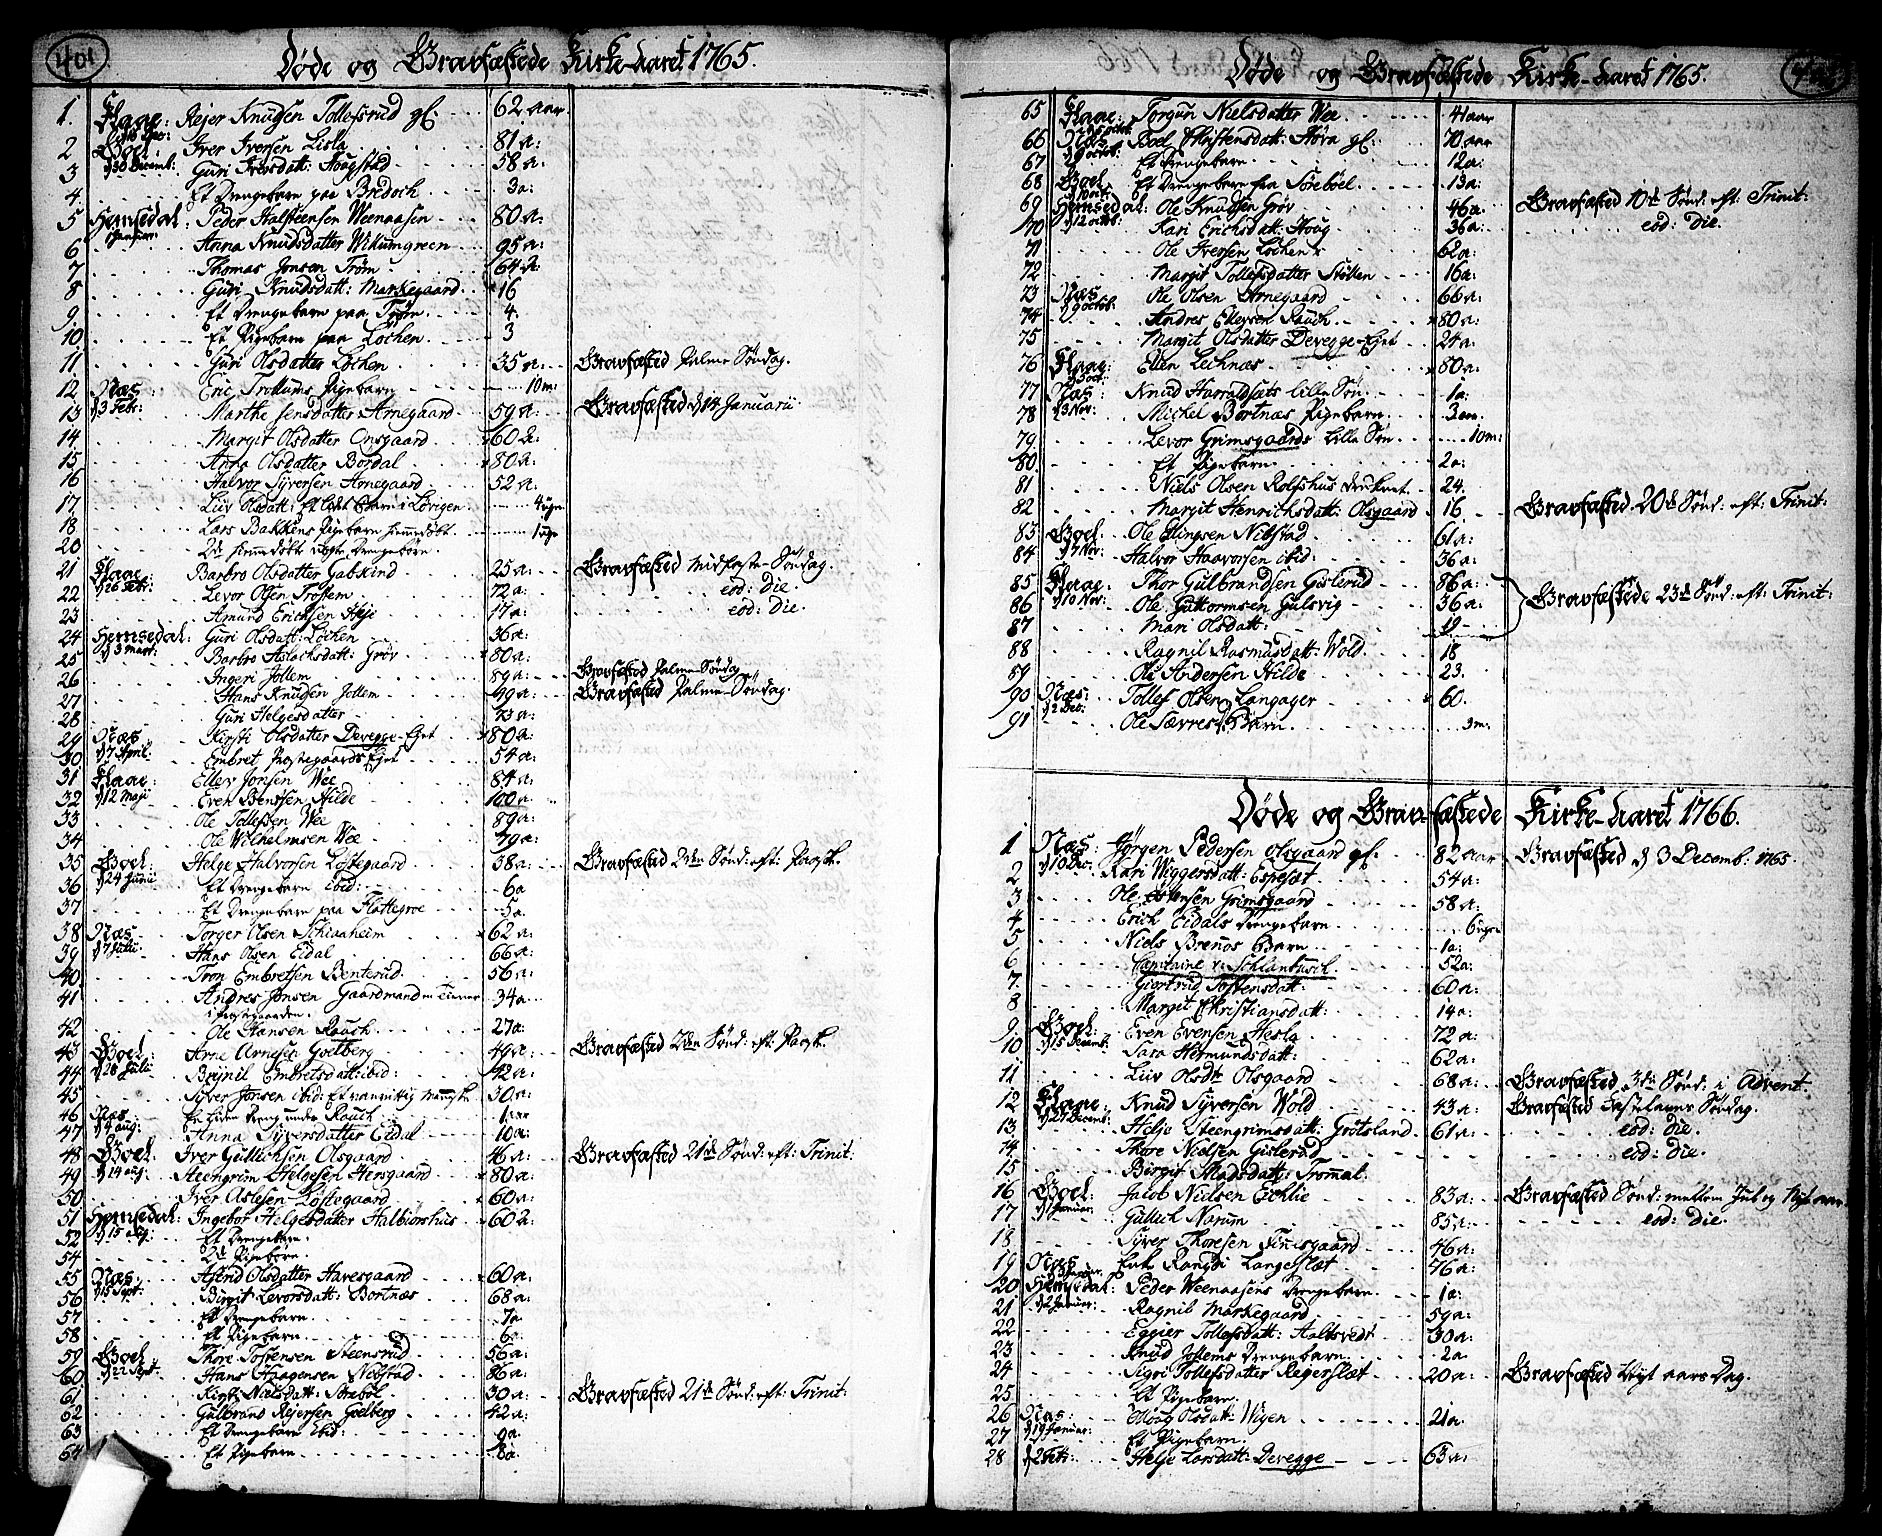 401
Døde og Gravfæstede Kirke-Aaret 1765.
1. Flaae: Rejer Knudsen Tollefsrud gl: 62 aar
2 Goel: Iver Iversen Lisla 81 a:
3 d 30 Decemb: Guri Iversdatt: Hougstad 58 a.
4. Et Drengebarn paa Bredoch 3 a:
5 Hemsedal: Peder Halsteensen Weenaasen 80 a:
6 Januar: Anna Knudsdatter Wikumgreen 95 a:
7 Thomas Jonsen Trøm 64 a:
8 Guri Knudsdatt: Markegaard 16
9 Et Drengebarn paa Trøm. 4.
10. Et Pigebarn paa Løchen 3
11. Guri Olsdatter Løchen 35 a. Gravfæsted Palme Søndag.
12 Næs Eric Trollums Pigebarn 10 m:
13 d 3 Febr: Marthe Jensdatter Arnegaard 59 a. Gravfæsted d 14 Januarii
14 Margit Olsdatter Onsgaard 60 a:
15 Anna Olsdatter Bordal 80 a:
16 Halvor Syversen Arnegaard 52 a.
17 Liv Olsdatt: Et Barn i Løvigen 4 uger
18 Lars Bakkens Pigebarn hiemmedøbt 1 uge
20 2de hiemmedøbt Drengebørn.
21 Flaae: Barbro Olsdatter Gabskind 25 a: Gravfæsted Midfaste-Søndag.
22 d 26 Febr: Levor Olsen Trostem 72 a. eod: Die.
23 Amund Erichsen Heje 17 a: eod: Die.
24 Hemsedal: Guri Olsdatt: Løchen 36 a:
25 d 3 Mart: Barbro Aslachsdatt: Grøv 80 a:
26 Ingeri Jottem 89 a: Gravfæsted Palme-Søndag
27 Hans Knudsen Jottem 49 a: Gravfæsted Palme-Søndag.
28 Guri Helgesdatter 73 a:
29 Næs Kirsti Olsdatter Devegge-Ejet 80 a:
30 d 7 April. Embret Præstegaards Ejet 54 a:
31 Flaae: Ellev Jonsen Wee 84 a:
32 d 12 Maji Even Bentsen Hilde 100 a
33 Ole Tollefsen Wee 89 a:
34 Ole Wilhelmsen Wee 79 a:
35 Goel: Helge Halvorsen Løstegaard 38 a: Gravfæsted 2den Sønd: eft: Paaske.
36 d 24 Junii Et Drengebarn ibid: 6 a
37 Et Drengebarn paa Flattegroe 5 a.
38 Næs Torger Olsen Schiaaheim 62 a:
39 d 7 Julii: Hans Olsen Eidal 66 a:
40 Tron Embretsen Benterud. 56 a:
41 Andres Jonsen Gaardmand 34 a
i Præstegaarden.
42. Ole Hansen Rauch 27 a:
43 Goel: Arne Arnesen Goelberg 49 a: Gravfæsted 2den Sønd: eft: Paaske.
44 d 28 Julii Brynil Embretsdatt: ibid: 42 a:
45 Syver Jonsen ibid: Et vanvittig 30 a:
46 Næs En liden Dreng under Rauch 1 aar
47 d 4 aug: Anna Syversdatter Eidal 10 a:
48 Goel: Iver Gullichsen Olsgaard 46 a: Gravfæsted 21de Sønd: eft: Trinit:
49 d 14 aug: Steengrim Helgesen Hersgaard 80 a:
50 Iver Aslesen Løstegaard 60 a:
51 Hemsedal: Ingebor Helgesdatter Halbiorhus 60 a:
52 Et Drengebarn.
54 2de Pigebørn.
55 Næs Astrid Olsdatter Haresgaard 60 a:
56 d 15 Sept: Birgit Levorsdatt: Bortnæs 68 a:
57 Et Drengebarn 7 a
58 Et Pigebarn 6 a:
59 Goel: Thore Tostensen Steensrud 56 a:
60 d 22 Sept: Hans Haagensen Nibstad 86 a:
61 Kirst: Nielsdatt: Sørebøl 30 a: Gravfæsted 21de Sønd: eft: Trinit:
62 Gulbrand Rejersen Goelberg 42 a:
63 Et Drengebarn ibid: 9 a:
64 Et Pigebarn 8 a:
Døde og Gravfæstede Kirke-Aaret 1765.
65 Flaae: Torgun Nielsdatter Wee 41 aar
66 Næs Boel Christensdatt: Høva gl: 70 aar
67 d 9 octob: Et Drengebarn 12 a:
68 Goel Et Drengebarn fra Sørebøel 13 a: Gravfæsted 10de Sønd: eft: Trinit:
69 Hemsedal: Ole Knudsen Grøv 46 a. eod: Die.
70 d 12 octob: Kari Erichsdatt: Houg 36 a:
71 Ole Iversen Løchen 62 a:
72 Margit Tollefsdatter Støllen 16 a:
73 Næs Ole Olsen Arnegaard 66 a:
74 d 9 octob. Andres Ellevsen Rauch 80 a:
75 Margit Olsdatter Devegge-Ejet 24 a:
76 Flaae: Ellen Lechnæs 80 a:
77 Næs: Knud Haraldsets lille Søn 1 a:
78 d 3 Nov: Michel Bortnæs Pigebarn. 3 m.
79 Levor Grimsgaards lille Søn 10 m:
80 Et Pigebarn 2 a:
81 Niels Olsen Rolfshus druknet. 24.
82 Margit Henrichsdatt: Olsgaard 16 Gravfæsted 20de Sønd: eft: Trinit:
83 Goel: Ole Elingsen Nibstad 61 a:
84 d 7 Nov: Halvor Haavorsen ibid: 36 a:
85 Flaae: Thor Gulbrandsen Gislerud 86 a: Gravfæstede 23de Sønd: eft: Trinit:
86 d 10 Nov: Ole Guttormsen Gulsvig 36 a:
87 Mari Olsdatt: 19
88 Ragnil Rasmusdatt: Wold. 18
89 Ole Andersen Hilde 23.
90 Næs: Tollef Olsen Langager 60.
91 d 2 Dec: Ole Sævres Barn 3 m:
Døde og Grav-fæstede Kirke-Aaret 1766.
1 Næs: Jørgen Pedersen Olsgaard gl: 82 aar Gravfæsted d 3 Decemb: 1765.
2 d 10 Dec: Kari Wiggersdatt: Espesæt 54 a:
3 Ole Grimsgaard 58 a:
4 Erich Eidals Drengebarn 6 uger
5 Niels Brenos Barn 1 a:
6 Capitaine v: Schlanbusch 52 a:
7. Giertrud Tostensdatt: 60 a:
8 Margit Christiansdatt: 14 a:
9. Goel: Even Evensen Hesla 72 a:
10 d 15 Decemb: Sara Hermundsdatt: 62 a:
11 Liv Olsdtr Olsgaard 68 a: Gravfæsted 3de Sønd: i Advent
12 Flaae: Knud Syversen Wold 43 a: Gravfæsted Fastelavns Søndag.
13 d 27 Decemb: Helje Steengrimsdatt: Grøtsland. 61 a: eod: Die.
14 Thore Nielsen Gislerud eod: Die.
15 Birgit Madsdatt: Trommal.
16 Goel: Jacob Nielsen Eichlie 83 a: Gravfæsted Sønd: mellem Jul og Nyt aar
17 d 1 Januar: Gullich Narum 85 a: eod: Die.
18 Syver Thoresen Finisgaard 46 a:
19 Næs Enk: Rangdi Langeslæt 76 a:
20 Hemsedal: Peder Weenaasens Drengebarn. 1 a:
21 d 12 Januar: Ragnil Markegaard 59 a:
22 Eggier Tollefsdatt: Aaltsvedt 30 a:
23 Knud Jottems Drengebarn 2 a:
24 Sigri Tollefsdatter Regerslæt 20 a: Gravfæsted Nyt aars Dag.
25 Et Pigebarn
26 Næs Olsdatt: Wigen 21 a.
27 d 19 Januar: Et Pigebarn.
28 Helje Larsdatt: Devegge 63 a: